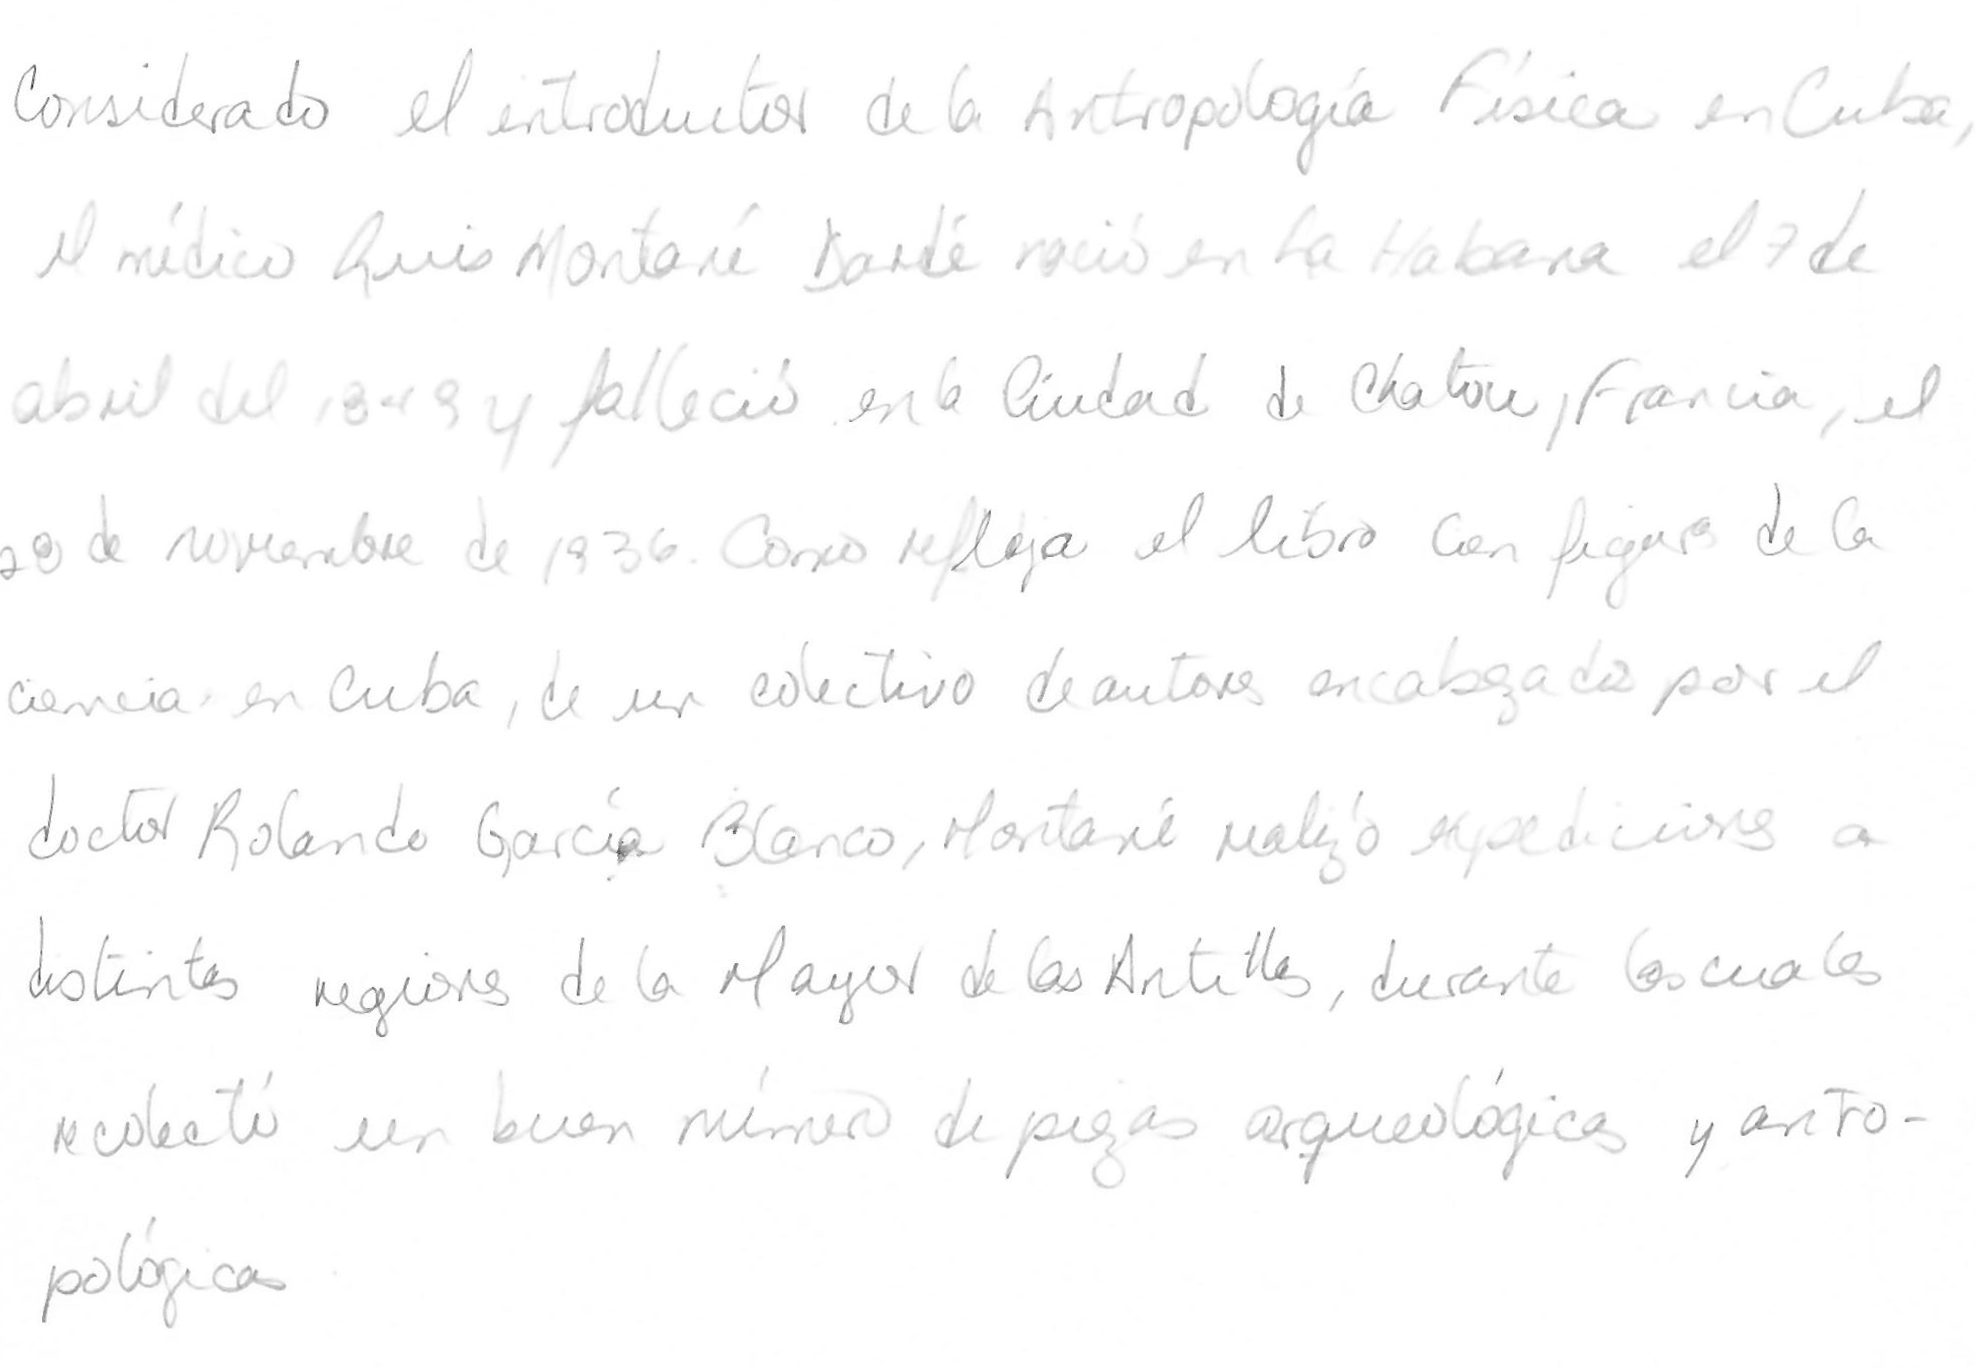 Considerado el introductor de la Antropología Física en Cuba,
el médico Luis Montané Dardé nació en La Habana el 7 de
abril del 1849 y falleció en la Ciudad de Chatou, Francia, el
de noviembre de 1936. Como refleja el libro Cien figuras de la
ciencia en Cuba, de un colectivo de autores encabezado por el
doctor Rolando García Blanco, Montané realizó expediciones a
distintas regiones de la Mayor de las Antillas, durante las cuales
recolectó un buen número de piezas arqueológicas y antro-
pológicas